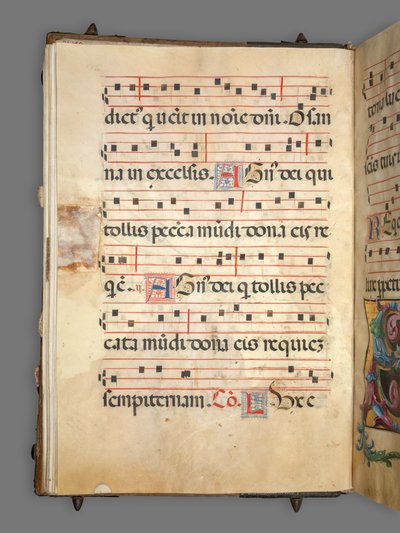 dict⁹ q uēit in nōie dm̄i. Osan
na in excelsis. Agn⁹ dei qui
tollis pecc̄a mūdi dona eis re
qē. ij. Agn⁹ dei q tollis pec
cata mūdi dona eis requiez
sempiternam. Cō. Lux e